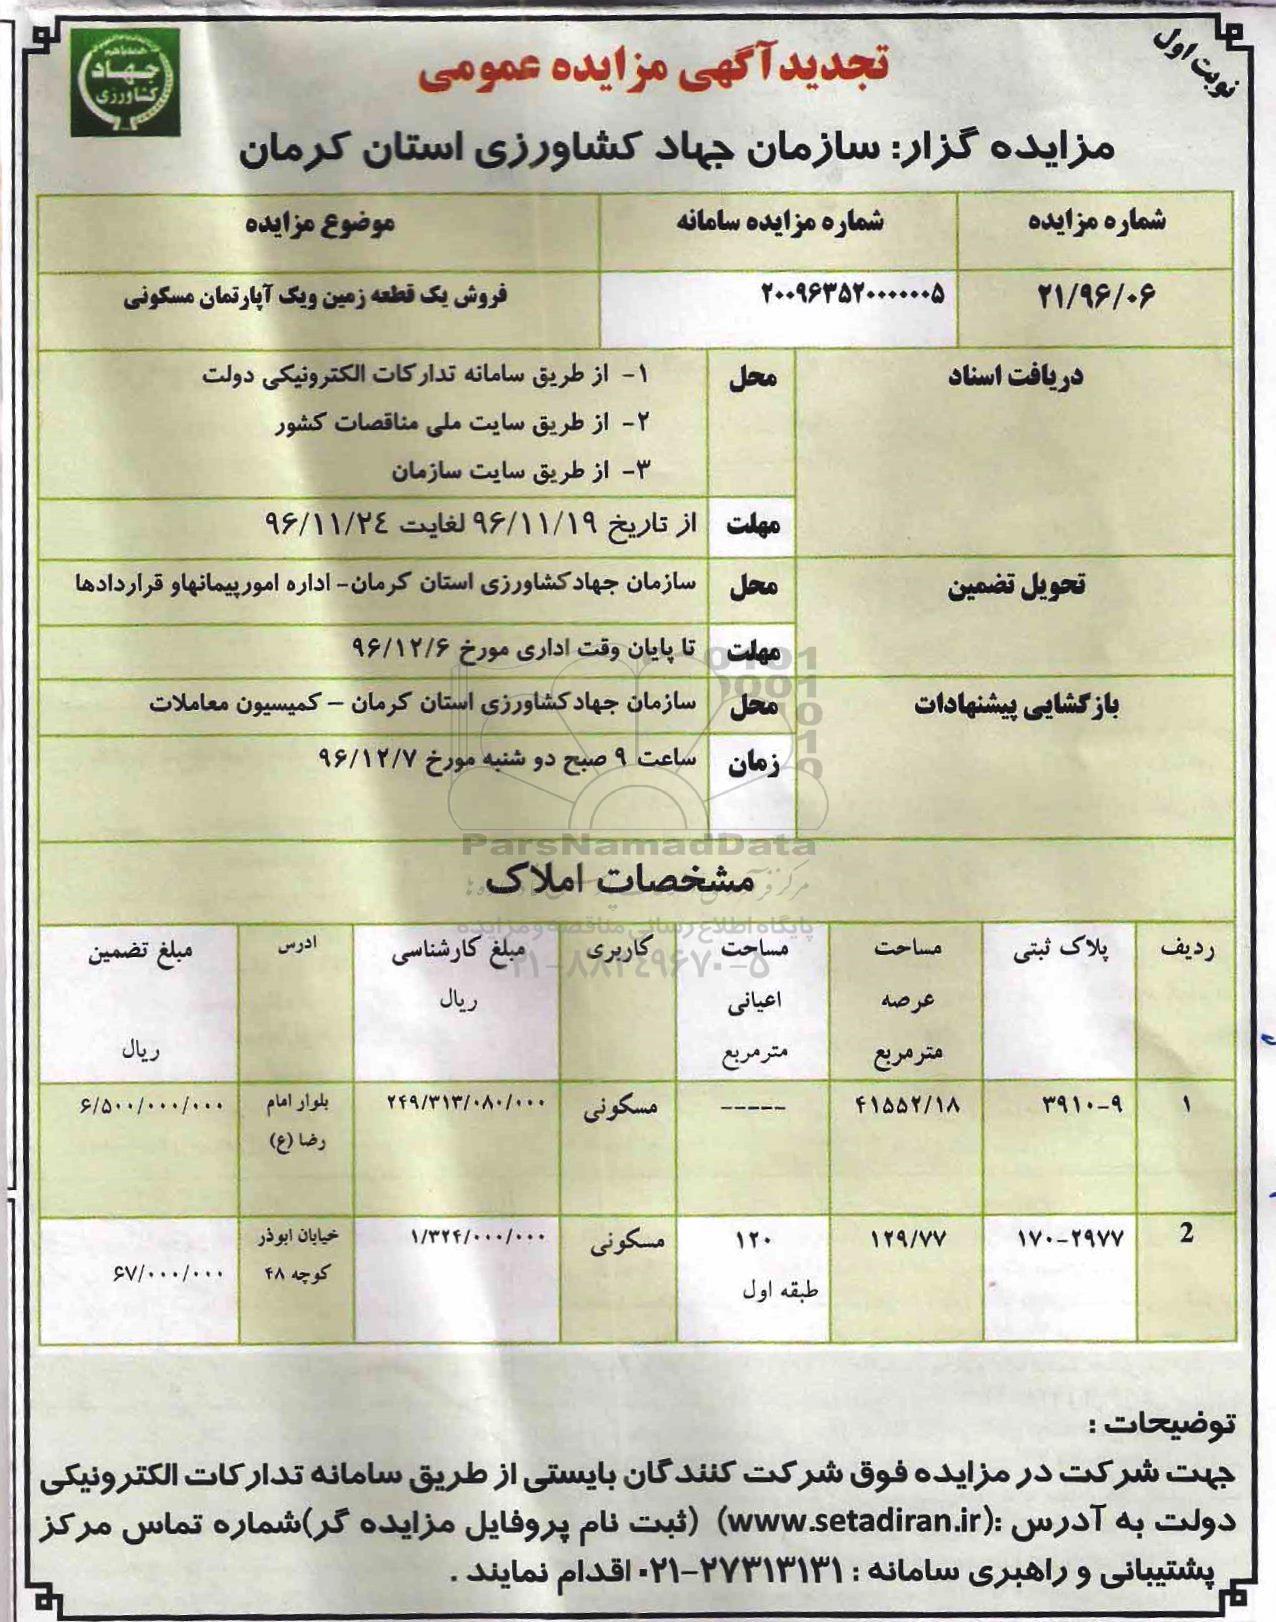 نوبت اول
تجدیدآگهی مزایده عمومی
جهاد
کشاورزی
مزایده گزار: سازمان جهاد کشاورزی استان کرمان
شماره مزایده
شماره مزایده سامانه
موضوع مزایده
۲۱/۹۶/۰۶
۲۰۰۹۶۳۵۲۰۰۰۰۰۰۵
فروش یک قطعه زمین ویک آپارتمان مسکونی
دریافت اسناد
محل
۱- از طریق سامانه تدارکات الکترونیکی دولت
۲- از طریق سایت ملی مناقصات کشور
۳- از طریق سایت سازمان
مهلت
از تاریخ ۹۶/۱۱/۱۹ لغایت ۹۶/۱۱/۲٤
تحویل تضمین
محل
سازمان جهادکشاورزی استان کرمان- اداره امورپیمانهاو قراردادها
مهلت
تا پایان وقت اداری مورخ ۹۶/۱۲/۶
بازگشایی پیشنهادات
محل
سازمان جهادکشاورزی استان کرمان – کمیسیون معاملات
زمان
ساعت ۹ صبح دو شنبه مورخ ۹۶/۱۲/۷
ParsNamadData
مشخصات املاک
پایگاه اطلاع رسانی مناقصه و مزایده
۰۲۱-۸۸۳۴۹۶۷۰-۵
ردیف
پلاک ثبتی
مساحت
عرصه
مترمربع
مساحت
اعیانی
مترمربع
کاربری
مبلغ کارشناسی
ریال
ادرس
مبلغ تضمین
ریال
۱
۳۹۱۰-۹
۴۱۵۵۲/۱۸
-----
مسکونی
۲۴۹/۳۱۳/۰۸۰/۰۰۰
بلوار امام
رضا (ع)
۶/۵۰۰/۰۰۰/۰۰۰
2
۱۷۰-۲۹۷۷
۱۲۹/۷۷
۱۲۰
طبقه اول
مسکونی
۱/۳۲۴/۰۰۰/۰۰۰
خیابان ابوذر
کوچه ۴۸
۶۷/۰۰۰/۰۰۰
توضیحات :
جهت شرکت در مزایده فوق شرکت کنندگان بایستی از طریق سامانه تدارکات الکترونیکی
دولت به آدرس :(www.setadiran.ir) (ثبت نام پروفایل مزایده گر)شماره تماس مرکز
پشتیبانی و راهبری سامانه : ۲۷۳۱۳۱۳۱-۰۲۱ اقدام نمایند .